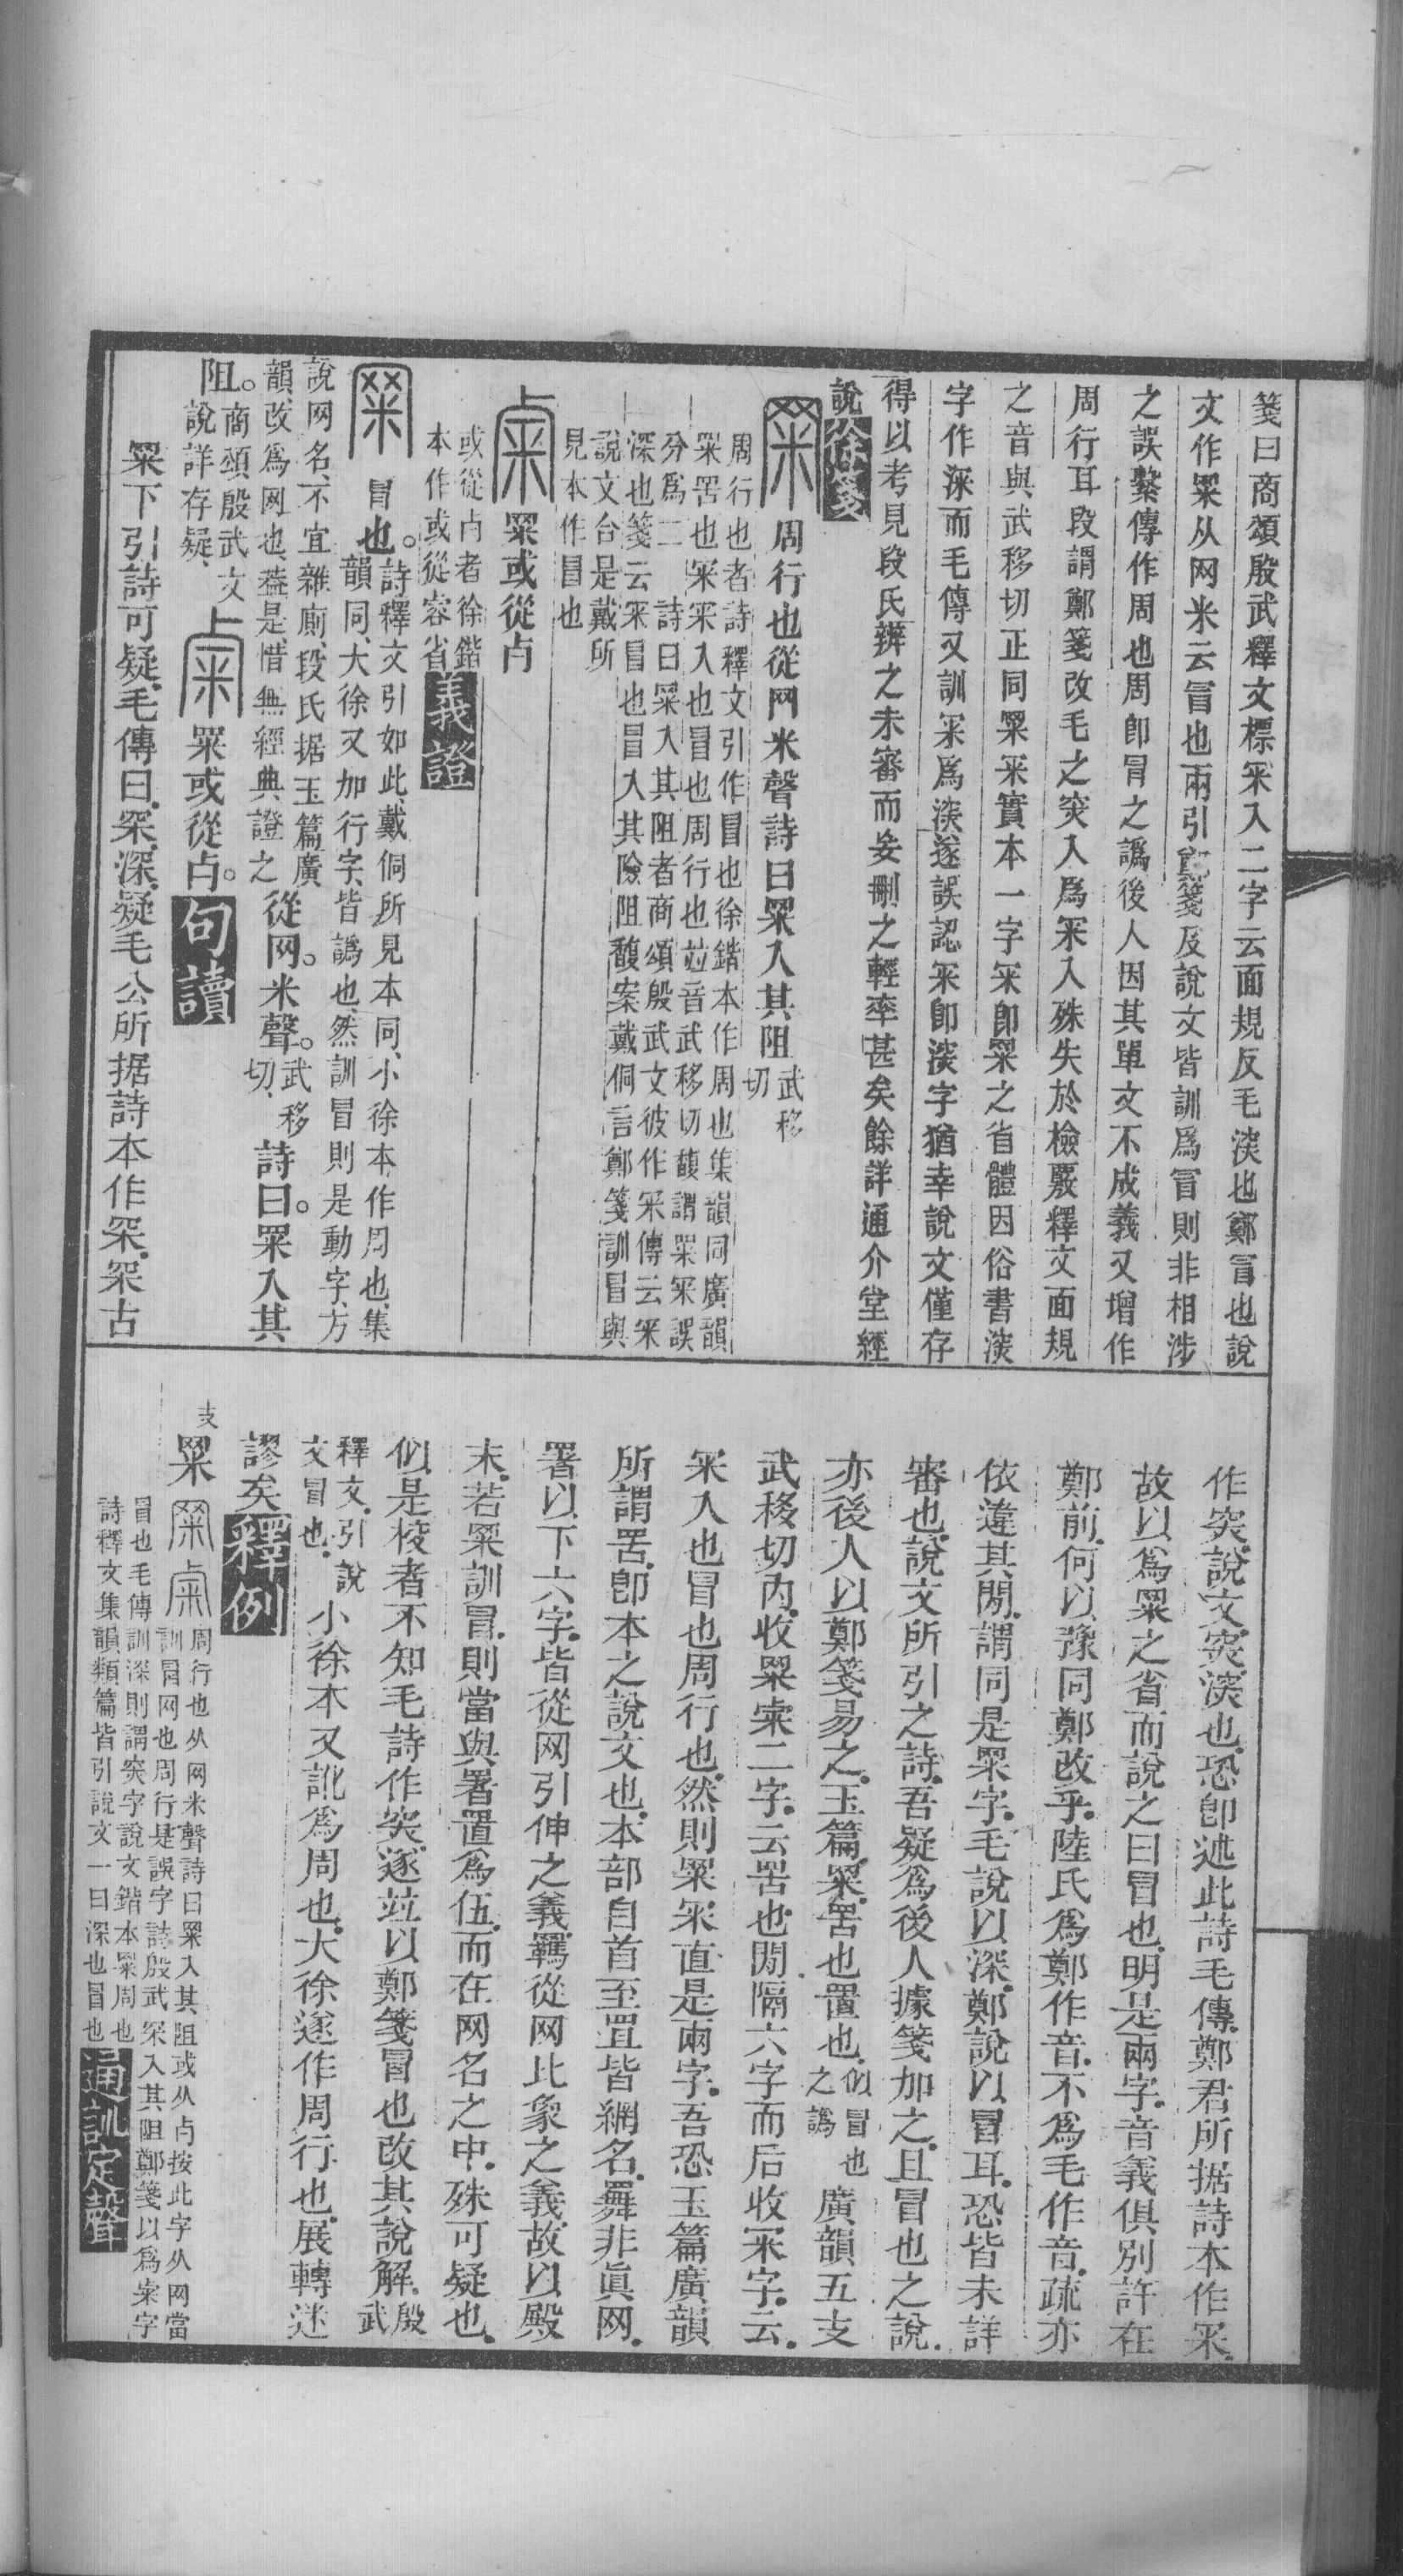 箋曰商頌殷武釋文標冞入二字云面規反毛湥也鄭冒也說
文作罙从网米云冒也兩引鄭箋及說文皆訓爲冒則非相涉
之誤繫傳作周也周卽冒之譌後人因其單文不成義又增作
周行耳段謂鄭箋改毛之突入爲冞入殊失於檢覈釋文面規
之音與武移切正同罙冞實本一字冞卽罙之省體因俗書湥
字作㴱而毛傳又訓冞爲湥遂誤認冞卽湥字猶幸說文僅存
得以考見段氏辨之未審而妄刪之輕率甚矣餘詳通介堂經
說徐箋
周行也從网米聲詩曰罙入其阻武移切
周行也者詩釋文引作冒也徐鍇本作周也集韻同廣韻
罙罟也冞冞入也冒也周行也竝音武移切馥謂罙冞誤
分爲二 詩曰罙入其阻者商頌殷武文彼作冞傳云冞
深也箋云冞冒也冒入其險阻馥案戴侗言鄭箋訓冒與
說文台是戴所
見本作冒也
罙或從占
或從占者徐鍇
本作或從容省義證
冒也。詩釋文引如此、戴侗所見本同、小徐本作周也、集
韻同、大徐又加行字、皆譌也、然訓冒則是動字、方
說网名、不宜雜廁、段氏据玉篇廣
韻、改爲网也、葢是、惜無經典證之從网。米聲。武移切、詩曰。罙入其
阻。商頌殷武文
說詳存疑、罙或從占。句讀
罙下引詩可疑.毛傳曰.冞.深.疑毛公所据詩本作冞.冞古
作突.說文.突.湥也.恐卽述此詩毛傳.鄭君所据詩本作冞.
故以爲罙之省而說之曰冒也.明是兩字.音義俱別.許在
鄭前.何以豫同鄭改乎.陸氏爲鄭作音.不爲毛作音.疏亦
依違其閒.謂同是罙字.毛說以深.鄭說以冒耳.恐皆未詳
審也.說文所引之詩.吾疑爲後人據箋加之.且冒也之說.
亦後人以鄭箋易之.玉篇.罙.罟也.置也.似冒也之譌 廣韻五支
武移切內.收罙㮆二字.云罟也.閒隔六字而后收冞字.云.
冞入也冒也周行也.然則罙冞直是兩字.吾恐玉篇廣韻
所謂罟.卽本之說文也.本部自首至罝皆網名.羉非眞网.
署以下六字.皆從网引伸之義.羈從网比象之義.故以殿
末.若罙訓冒.則當與署置爲伍.而在网名之中.殊可疑也.
似是校者不知毛詩作突.遂竝以鄭箋冒也改其說解.殷武
釋文.引說文冒也.小徐本又訛爲周也.大徐遂作周行也.展轉迷
謬矣釋例
支罙 周行也从网米聲詩曰罙入其阻或从占按此字从网當
訓冒网也周行是誤字詩殷武冞入其阻鄭箋以爲罙字
冒也毛傳訓深則謂突字說文鍇本罙周也
詩釋文集韻類篇皆引說文一曰深也冒也通訓定聲